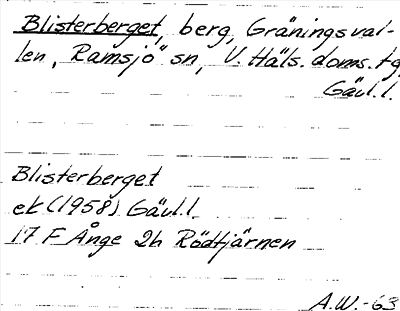 Blisterberget, berg, Gräningsval-
len, Ramsjö sn, V. Häls. doms. tg,
Gävl.l.
Blisterberget
ek (1958) Gävl.l.
17 F Ånge 2h Rödtjärnen
A.W.-63